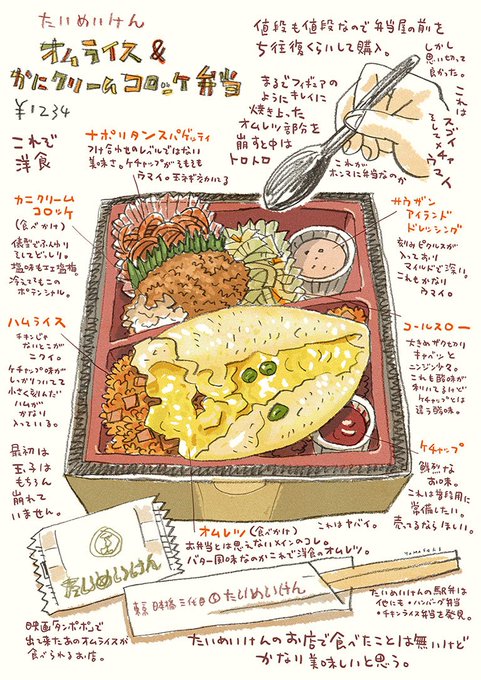 たいめいけん
オムライス&
かにクリームコロッケ弁当
¥1234
これで
洋食
値段も値段なので弁当屋の前を
5往復くらいして購入。
しかし
思い切って
良かった。
まるでフィギュアの
ようにキレイに
焼き上った
オムレツ部分を
崩すと中は
トロトロ
これは
スゴイ
そしてメチャ
ウマイ
これが
ホンマに弁当なのか
ナポリタンスパゲッティ
つけ合わせのレベルではない
美味さ。ケチャップがそもそも
ウマイ。
カニクリーム
コロッケ
(食べかけ)
俵型でふんわり
そしてどっしり。
塩味もエエ塩梅。
冷えてもこの
ポテンシャル。
サウザン
アイランド
ドレッシング
刻みピクルスが
入っており
マイルドで深い。
これもかなり
ウマイ。
ハムライス
チキンじゃ
ないとこが
ニクイ。
ケチャップ味が
しっかりついてて
小さく刻んだ
ハムが
かなり
入っている。
コールスロー
大きめザク切り
キャベツと
ニンジン少々。
これも酸味が
利いてるけど
ケチャップとは
違う酸味。
最初は
玉子は
もちろん
崩れて
いません。
ケチャップ
鮮烈な
お味。
これは普段用に
常備したい。
売ってるならほしい。
オムレツ(食べかけ)
お弁当とは思えないメインのコレ。
バター風味なのかこれで洋食のオムレツ。
これはヤバイ。
たいめいけん
東京 日本橋 三代目 たいめいけん
映画「タンポポ」で
出て来たあのオムライスが
食べられるお店。
たいめいけんの駅弁は
他にも・ハンバーグ弁当
・チキンライス弁当を発見。
たいめいけんのお店で食べたことは無いけど
かなり美味しいと思う。